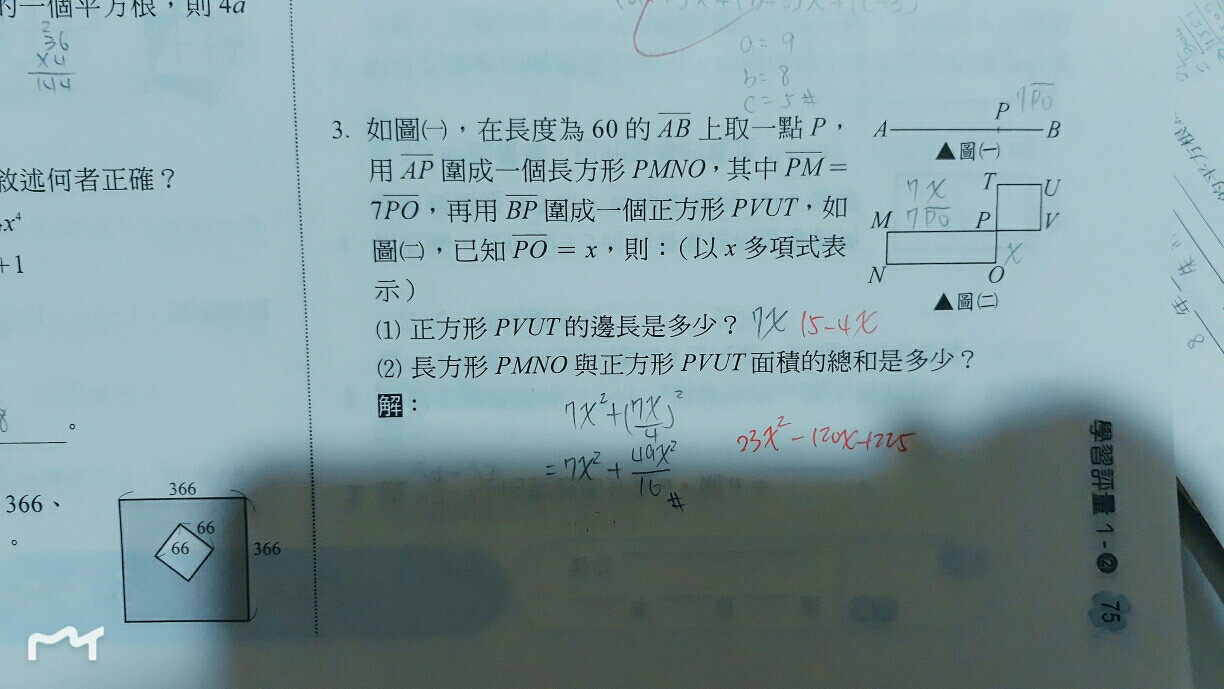 的一個平方根，則 4a
36
x4
144
a = 9
b = 8
c = 5 #
3. 如圖㈠，在長度為 60 的 AB 上取一點 P，
用 AP 圍成一個長方形 PMNO，其中 PM =
7PO，再用 BP 圍成一個正方形 PVUT，如
圖㈡，已知 PO = x，則：（以 x 多項式表
示）
P 7PO
A B
▲圖㈠
7x T U
M 7PO P V
x
N O
▲圖㈡
⑴ 正方形 PVUT 的邊長是多少？ 7x 15-4x
⑵ 長方形 PMNO 與正方形 PVUT 面積的總和是多少？
解：
7x²+(7x/4)²
=7x²+49x²/16 #
23x²-120x+225
敘述何者正確？
x⁴
+1
8 。
366、
。
366
66
66
366
學習評量 1-❷ 75